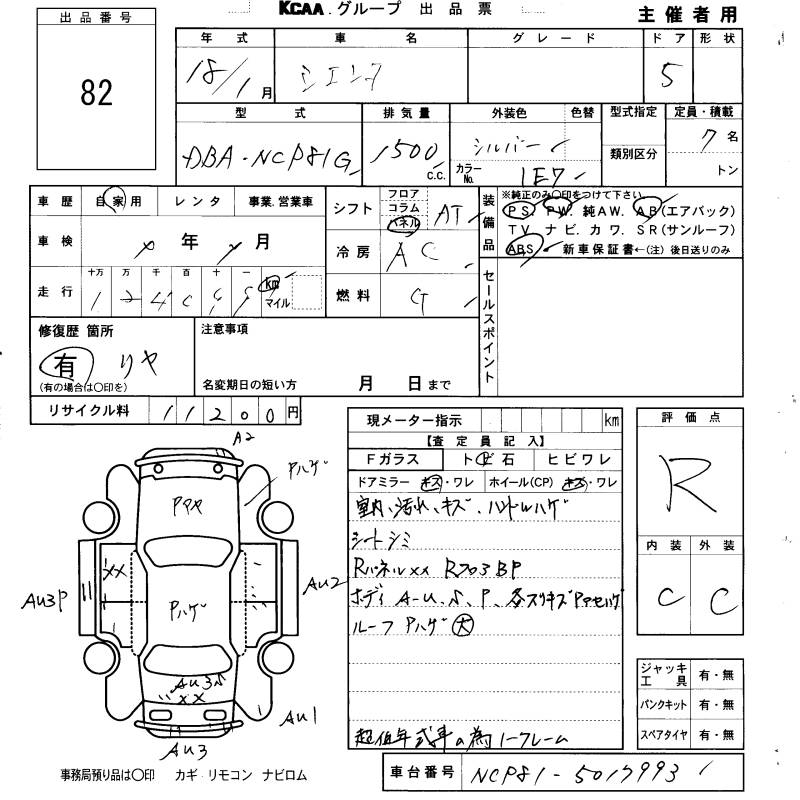 KCAA グループ 出品票
主催者用
出品番号
82
年式 車名 グレード ドア 形状
18/1月 シエンタ 5
型式 排気量 外装色 色替 型式指定 定員・積載
DBA-NCP81G 1500 c.c. シルバー 7名
カラーNo. 1E7 類別区分 トン
車歴 自家用 レンタ 事業.営業車
シフト フロア コラム パネル AT
装備品
※純正のみ○印をつけて下さい
PS. PW. 純AW. AB(エアバック)
TV ナビ. カワ. SR(サンルーフ)
ABS. 新車保証書←(注) 後日送りのみ
車検 年 月
冷房 AC
走行 十万 万 千 百 十 一
km マイル
燃料 G
セールスポイント
修復歴 箇所
有 リヤ
(有の場合は○印を)
注意事項
名変期日の短い方 月 日まで
リサイクル料 11200円
現メーター指示 km
【査定員記入】
Fガラス トビ石 ヒビワレ
ドアミラー キズ・ワレ ホイール(CP) キズ・ワレ
室内、汚れ、キズ、ハンドルハゲ
シートシミ
RパネルXX RフロアBP
ボディ A-U.S、P、各スリキズPアセハゲ
ルーフ Pハゲ 大
超低年式車の為ノークレーム
評価点
R
内装 外装
C C
ジャッキ 工具 有・無
パンクキット 有・無
スペアタイヤ 有・無
A2
Pハゲ
Pアセ
XX
AU3P
AU2
Pハゲ
AU3S
XX
AU1
AU3
事務局預り品は○印 カギ リモコン ナビロム
車台番号 NCP81-5017993